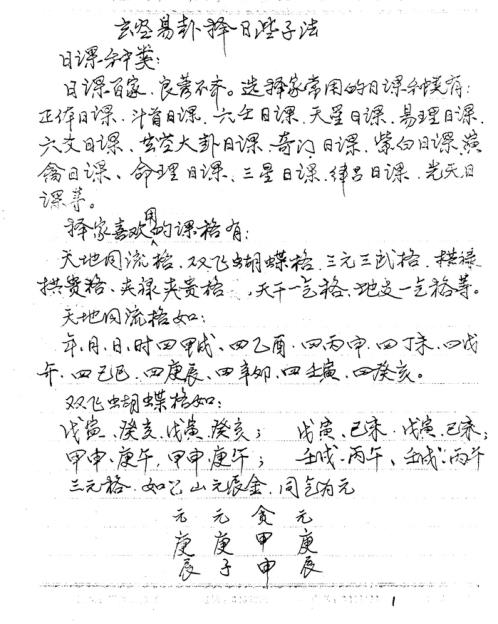 玄空易卦择日
日课分类:
日课百家、良莠不齐。选择家常用的日课分类有:
正体日课、斗首日课、六壬日课、天星日课、易理日课、
六爻日课、玄空大卦日课、奇门日课、紫白日课、演
禽日课、命理日课、三星日课、律吕日课、先天日
课等。
择家喜欢用的课格有:
天地同流格、双飞蝴蝶格、三元三武格、拱禄
拱贵格、夹禄夹贵格、天干一气格、地支一气格等。
天地同流格如:
年、月、日、时四甲戌、四乙酉、四丙申、四丁未、四戊
午、四己巳、四庚辰、四辛卯、四壬寅、四癸亥。
双飞蝴蝶格如:
戊寅、癸亥、戊寅、癸亥; 戊寅、己未、戊寅、己未;
甲申、庚午、甲申、庚午; 壬戌、丙午、壬戌、丙午
三元格、如 山元辰金、同气为元
元 元 贪 元
庚 庚 甲 庚
辰 子 申 辰
1